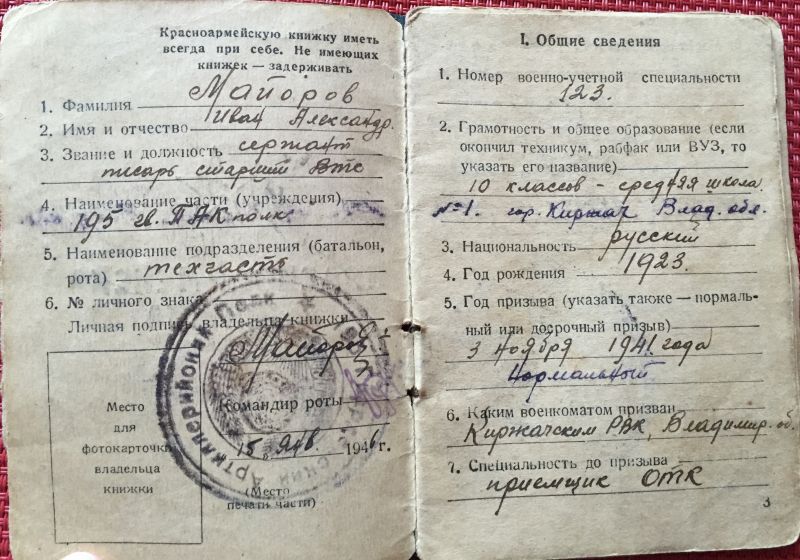 Красноармейскую книжку иметь
всегда при себе. Не имеющих
книжек — задерживать
1. Фамилия Майоров
2. Имя и отчество Иван Александр.
3. Звание и должность сержант
писарь старший ВТС
4. Наименование части (учреждения)
195 гв. ПАК полк
5. Наименование подразделения (батальон,
рота) техчасть
6. № личного знака
Личная подпись владельца книжки
Майоров
Командир роты
15 янв. 1946 г.
Место
для
фотокарточки
владельца
книжки
(Место
печати части)
Артиллерийский Полк
I. Общие сведения
1. Номер военно-учетной специальности
123.
2. Грамотность и общее образование (если
окончил техникум, рабфак или ВУЗ, то
указать его название)
10 классов - средняя школа
№1. гор. Киржач Влад. обл.
3. Национальность русский
4. Год рождения 1923.
5. Год призыва (указать также — нормаль-
ный или досрочный призыв)
3 ноября 1941 года
Нормальный
6. Каким военкоматом призван
Киржачским РВК, Владимир. об.
7. Специальность до призыва
приемщик ОТК
3